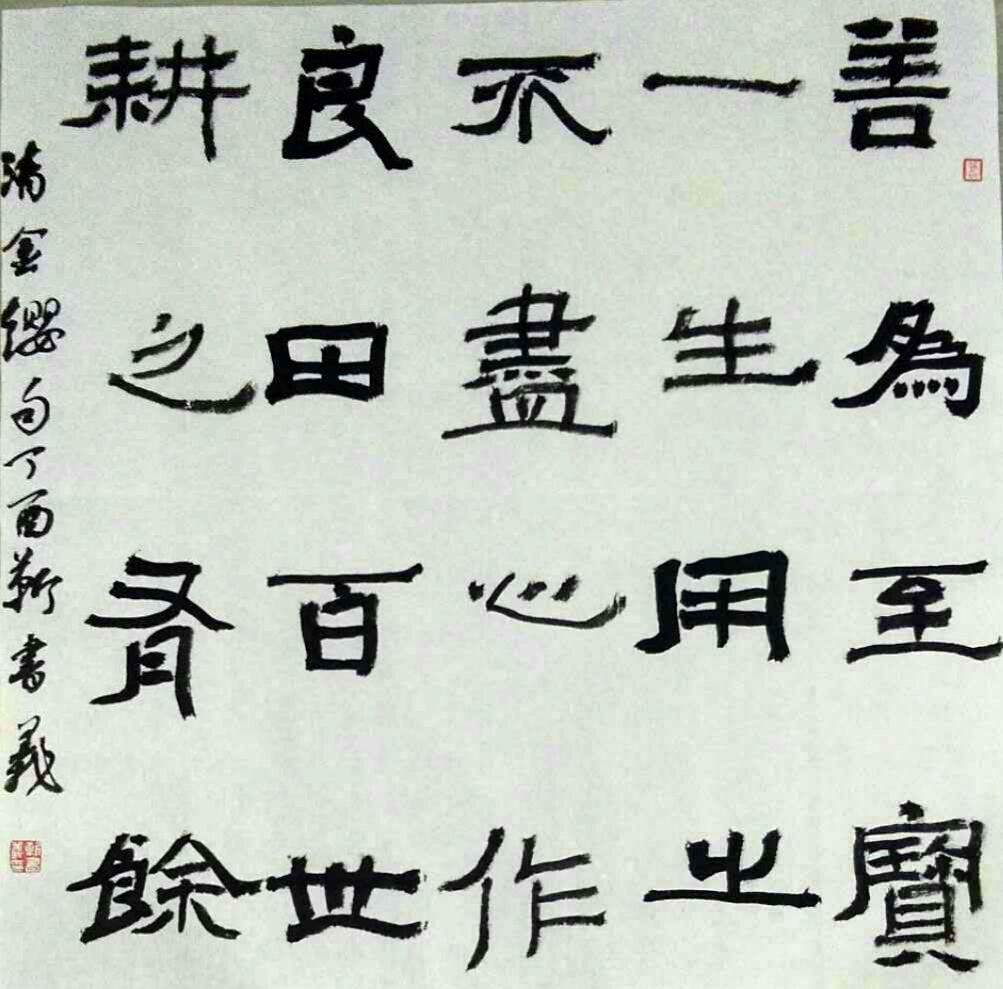 善為至寶
一生用之
不盡心作
良田百世
耕之有餘
清金纓句丁酉靳書義